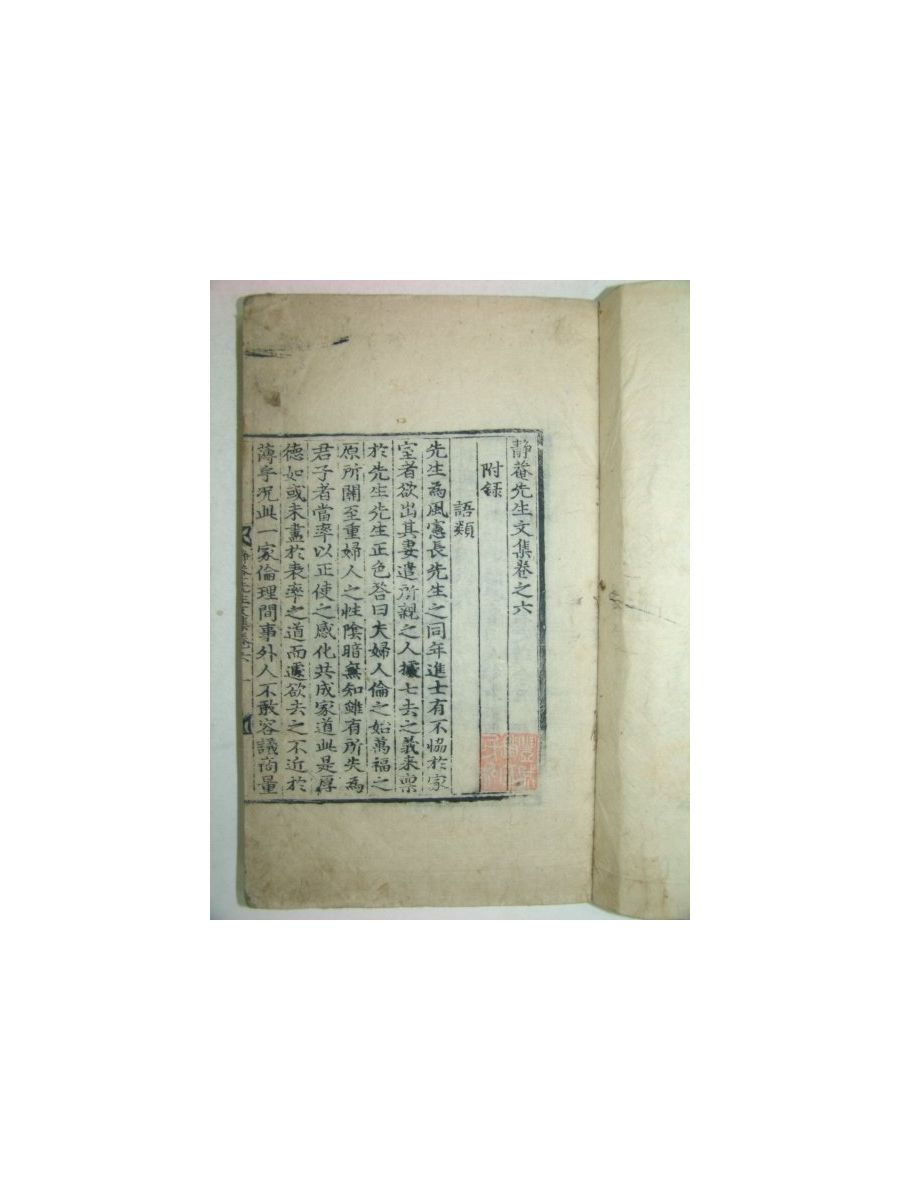 靜菴先生文集卷之六
附錄
語類
先生為風憲長先生之同年進士有不恊於家
室者欲出其妻遣所親之人據七去之義来禀
於先生先生正色荅曰夫婦人倫之始萬福之
原所關至重婦人之性陰暗無知雖有所失為
君子者當率以正使之感化共成家道此是厚
德如或未盡於表率之道而遽欲去之不近於
薄乎况此一家倫理間事外人不敢容議商量